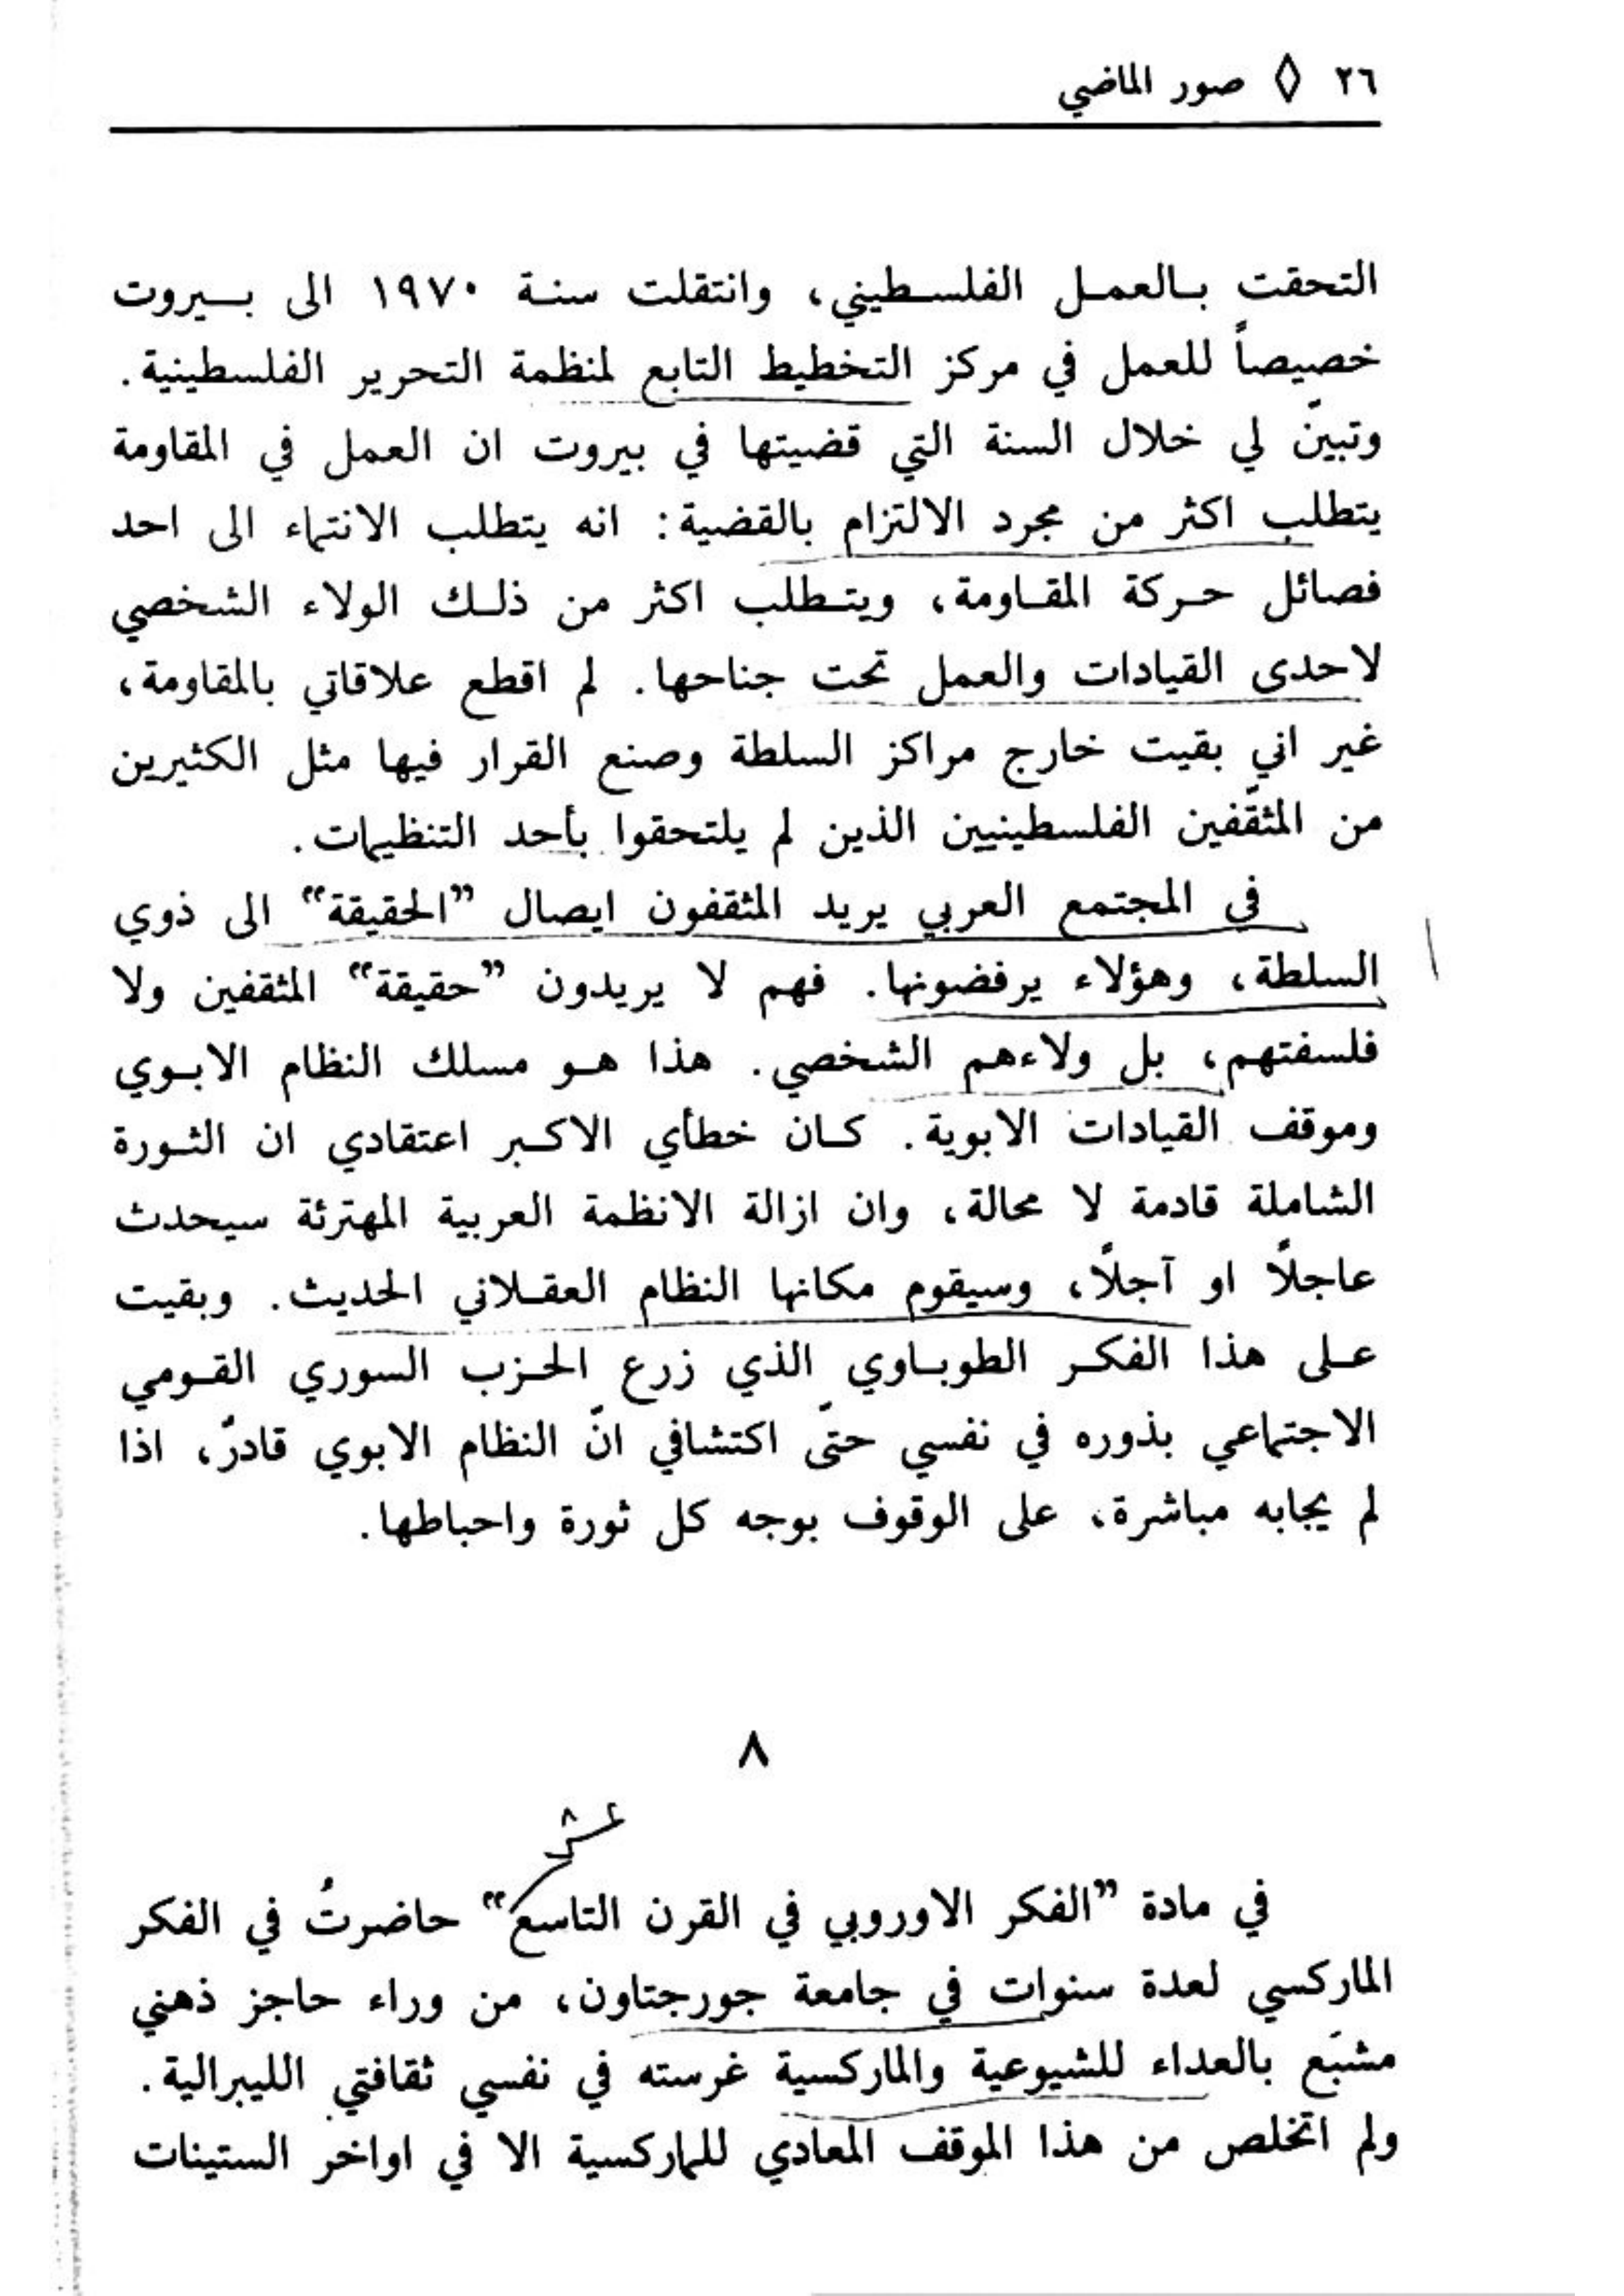 ٢٦ ◊ صور الماضي
التحقت بالعمل الفلسطيني، وانتقلت سنة ١٩٧٠ الى بيروت
خصيصاً للعمل في مركز التخطيط التابع لمنظمة التحرير الفلسطينية.
وتبينّ لي خلال السنة التي قضيتها في بيروت ان العمل في المقاومة
يتطلب اكثر من مجرد الالتزام بالقضية: انه يتطلب الانتماء الى احد
فصائل حركة المقاومة، ويتطلب اكثر من ذلك الولاء الشخصي
لاحدى القيادات والعمل تحت جناحها. لم اقطع علاقاتي بالمقاومة،
غير اني بقيت خارج مراكز السلطة وصنع القرار فيها مثل الكثيرين
من المثقّفين الفلسطينيين الذين لم يلتحقوا بأحد التنظيمات.
في المجتمع العربي يريد المثقفون ايصال "الحقيقة" الى ذوي
السلطة، وهؤلاء يرفضونها. فهم لا يريدون "حقيقة" المثقفين ولا
فلسفتهم، بل ولاءهم الشخصي. هذا هو مسلك النظام الابوي
وموقف القيادات الابوية. كان خطأي الاكبر اعتقادي ان الثورة
الشاملة قادمة لا محالة، وان ازالة الانظمة العربية المهترئة سيحدث
عاجلاً او آجلاً، وسيقوم مكانها النظام العقلاني الحديث. وبقيت
على هذا الفكر الطوباوي الذي زرع الحزب السوري القومي
الاجتماعي بذوره في نفسي حتىّ اكتشافي انّ النظام الابوي قادرٌ، اذا
لم يجابه مباشرة، على الوقوف بوجه كل ثورة واحباطها.
٨
عشر
في مادة "الفكر الاوروبي في القرن التاسع" حاضرتُ في الفكر
الماركسي لعدة سنوات في جامعة جورجتاون، من وراء حاجز ذهني
مشبَع بالعداء للشيوعية والماركسية غرسته في نفسي ثقافتي الليبرالية.
ولم اتخلص من هذا الموقف المعادي للماركسية الا في اواخر الستينات